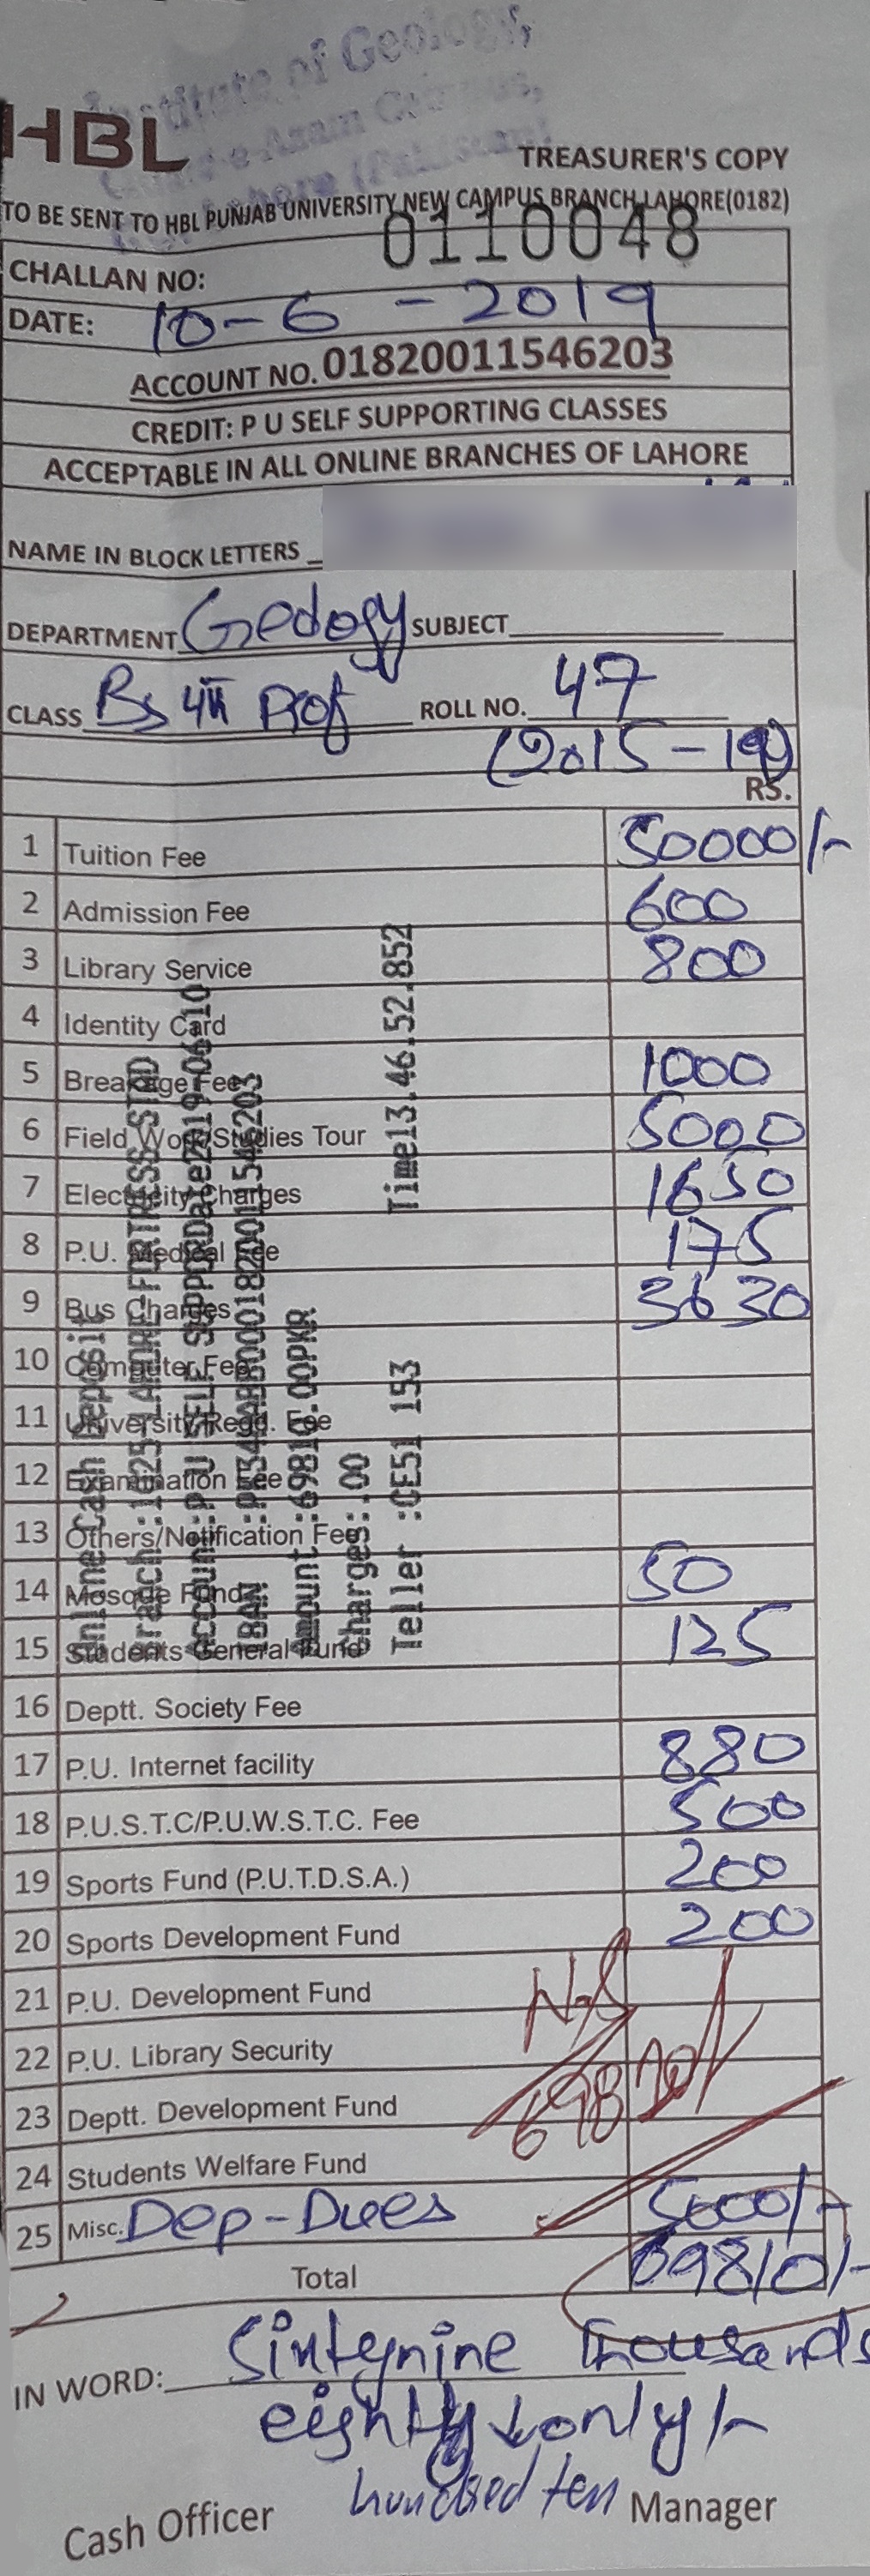 Institute of Geology,
Quaid-e-Azam Campus,
Lahore (Pakistan)
HBL
TREASURER'S COPY
TO BE SENT TO HBL PUNJAB UNIVERSITY NEW CAMPUS BRANCH LAHORE(0182)
0110048
CHALLAN NO:
DATE: 10-6-2019
ACCOUNT NO. 01820011546203
CREDIT: P U SELF SUPPORTING CLASSES
ACCEPTABLE IN ALL ONLINE BRANCHES OF LAHORE
NAME IN BLOCK LETTERS
DEPARTMENT Geology SUBJECT
CLASS Bs 4th Prof ROLL NO. 47
(2015-19)
RS.
1 Tuition Fee 50000/-
2 Admission Fee 600
3 Library Service 800
4 Identity Card
5 Breakage Fee 1000
6 Field Work/Studies Tour 5000
7 Electricity Charges 1650
8 P.U. Medical Fee 175
9 Bus Charges 3630
10 Computer Fee
11 University Regd. Fee
12 Examination Fee
13 Others/Notification Fee
14 Mosque Fund 50
15 Students General Fund 125
16 Deptt. Society Fee
17 P.U. Internet facility 880
18 P.U.S.T.C/P.U.W.S.T.C. Fee 500
19 Sports Fund (P.U.T.D.S.A.) 200
20 Sports Development Fund 200
21 P.U. Development Fund
22 P.U. Library Security
23 Deptt. Development Fund
24 Students Welfare Fund
25 Misc. Dep-Dues 5000/-
Total 69810/-
IN WORD: Sixtynine Thousands
eighty only/-
hundred ten
Cash Officer Manager
Online Cash Deposit
Branch :1625 LAHORE-FORTRESS STAD
Account:P U SELF SUPPOR Date2019-06-10
Amount :69810.00PKR
Charges:.00
Teller :CE51 153 Time13.46.52.852